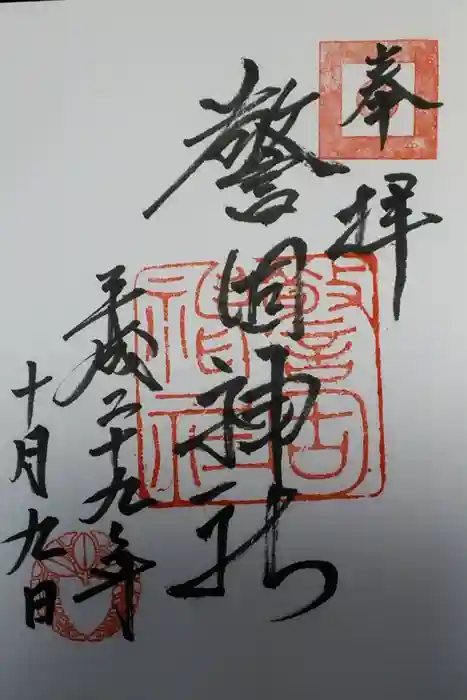 奉拝
警固神社
平成二十九年
十月九日
警固神社